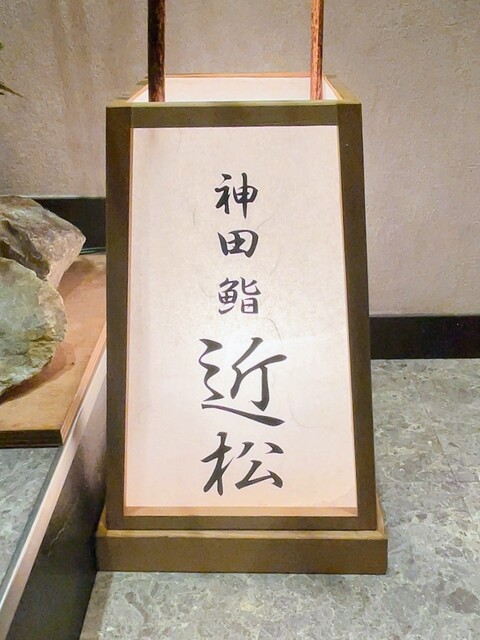 神田鮨近松